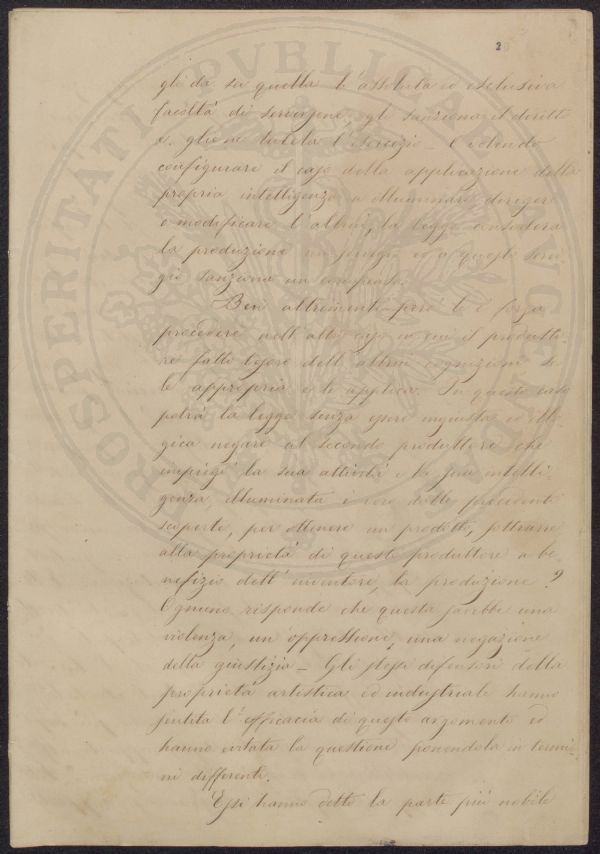 20
gli dà su quella l'assoluta ed esclusiva
facoltà di servirsene, gli sanziona il diritto
e gliene tutela l'esercizio – Volendo
configurare il caso della applicazione della
propria intelligenza a illuminare dirigere
e modificare l'altrui, la legge considera
la produzione un servigio ed a questo servi-
gio sanziona un compenso.
Ben altrimenti però le è forza
procedere nell'altro caso in cui il produtto-
re fatto tesoro dell'altrui cognizioni se
le appropria e le applica. In questo caso
potrà la legge senza essere ingiusta ed illo-
gica negare al secondo produttore che
impiegò la sua attività e la sua intelli-
genza illuminata dalle precedenti
scoperte, per ottenere un prodotto, sottrarre
alla proprietà di questo produttore a be-
nefizio dell'inventore, la produzione?
Ognuno risponde che questa sarebbe una
violenza, un'oppressione, una negazione
della giustizia – Gli stessi difensori della
proprietà artistica ed industriale hanno
sentita l'efficacia di questo argomento ed
hanno evitata la questione ponendola in termi-
ni differenti.
Essi hanno detto la parte più nobile
PROSPERITATI PVBLICAE AVG